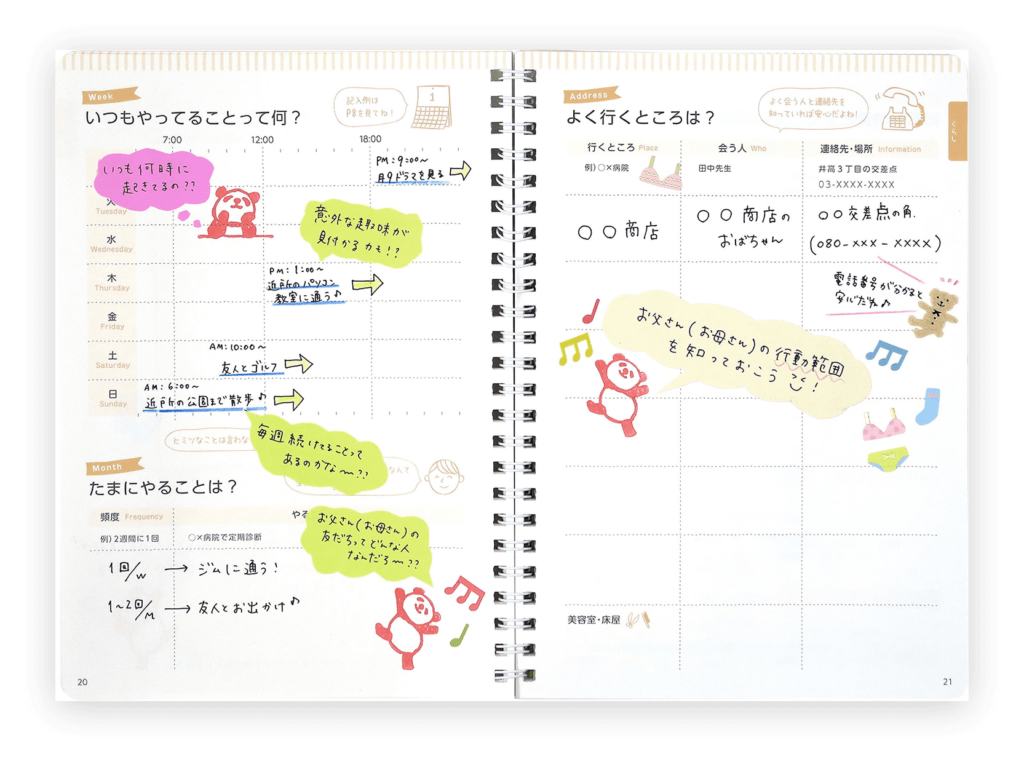 Week
いつもやってることって何？
記入例は
P8を見てね！
7:00
12:00
18:00
PM:9:00～
月9ドラマを見る
いつも何時に
起きてるの??
火
Tuesday
意外な趣味が
見付かるカモ!?
水
Wednesday
木
Thursday
PM:1:00～
近所のパソコン
教室に通う♪
金
Friday
土
Saturday
AM:10:00～
友人とゴルフ
日
Sunday
AM:6:00～
近所の公園まで散歩♪
毎週続けてることって
あるのかな～??
ヒミツなことは言わな
なんて
Month
たまにやることは？
頻度 Frequency
やる
例）2週間に1回
○×病院で定期診断
お父さん(お母さん)の
友だちってどんな人
なんだろ～??
1回/W → ジムに通う!
1～2回/M → 友人とお出かけ♪
20
Address
よく行くところは？
よく会う人と連絡先を
知っていれば安心だよね！
くらし
行くところ Place
会う人 Who
連絡先・場所 Information
例）○×病院
田中先生
井高3丁目の交差点
03-XXXX-XXXX
○○商店
○○商店の
おばちゃん
○○交差点の角.
(080-xxx-xxxx)
電話番号が分かると
安心だね♪
お父さん(お母さん)の行動範囲
を知っておこう!
美容室・床屋
21